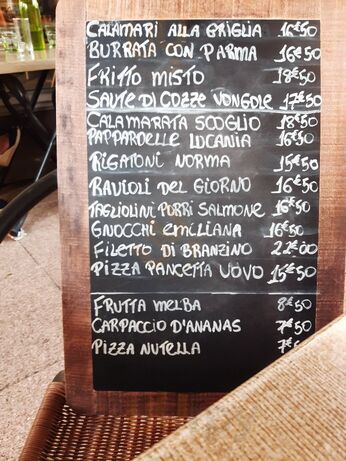 CALAMARI ALLA GRIGLIA 16€50
BURRATA CON PARMA 16€50
FRITTO MISTO 18€50
SAUTE DI COZZE VONGOLE 17€50
CALAMARATA SCOGLIO 18€50
PAPPARDELLE LUCANIA 16€50
RIGATONI NORMA 15€50
RAVIOLI DEL GIORNO 16€50
TAGLIOLINI PORRI SALMONE 16€50
GNOCCHI EMILIANA 16€50
FILETTO DI BRANZINO 22€00
PIZZA PANCETTA UOVO 15€50
FRUTTA MELBA 8€50
CARPACCIO D'ANANAS 7€50
PIZZA NUTELLA 7€